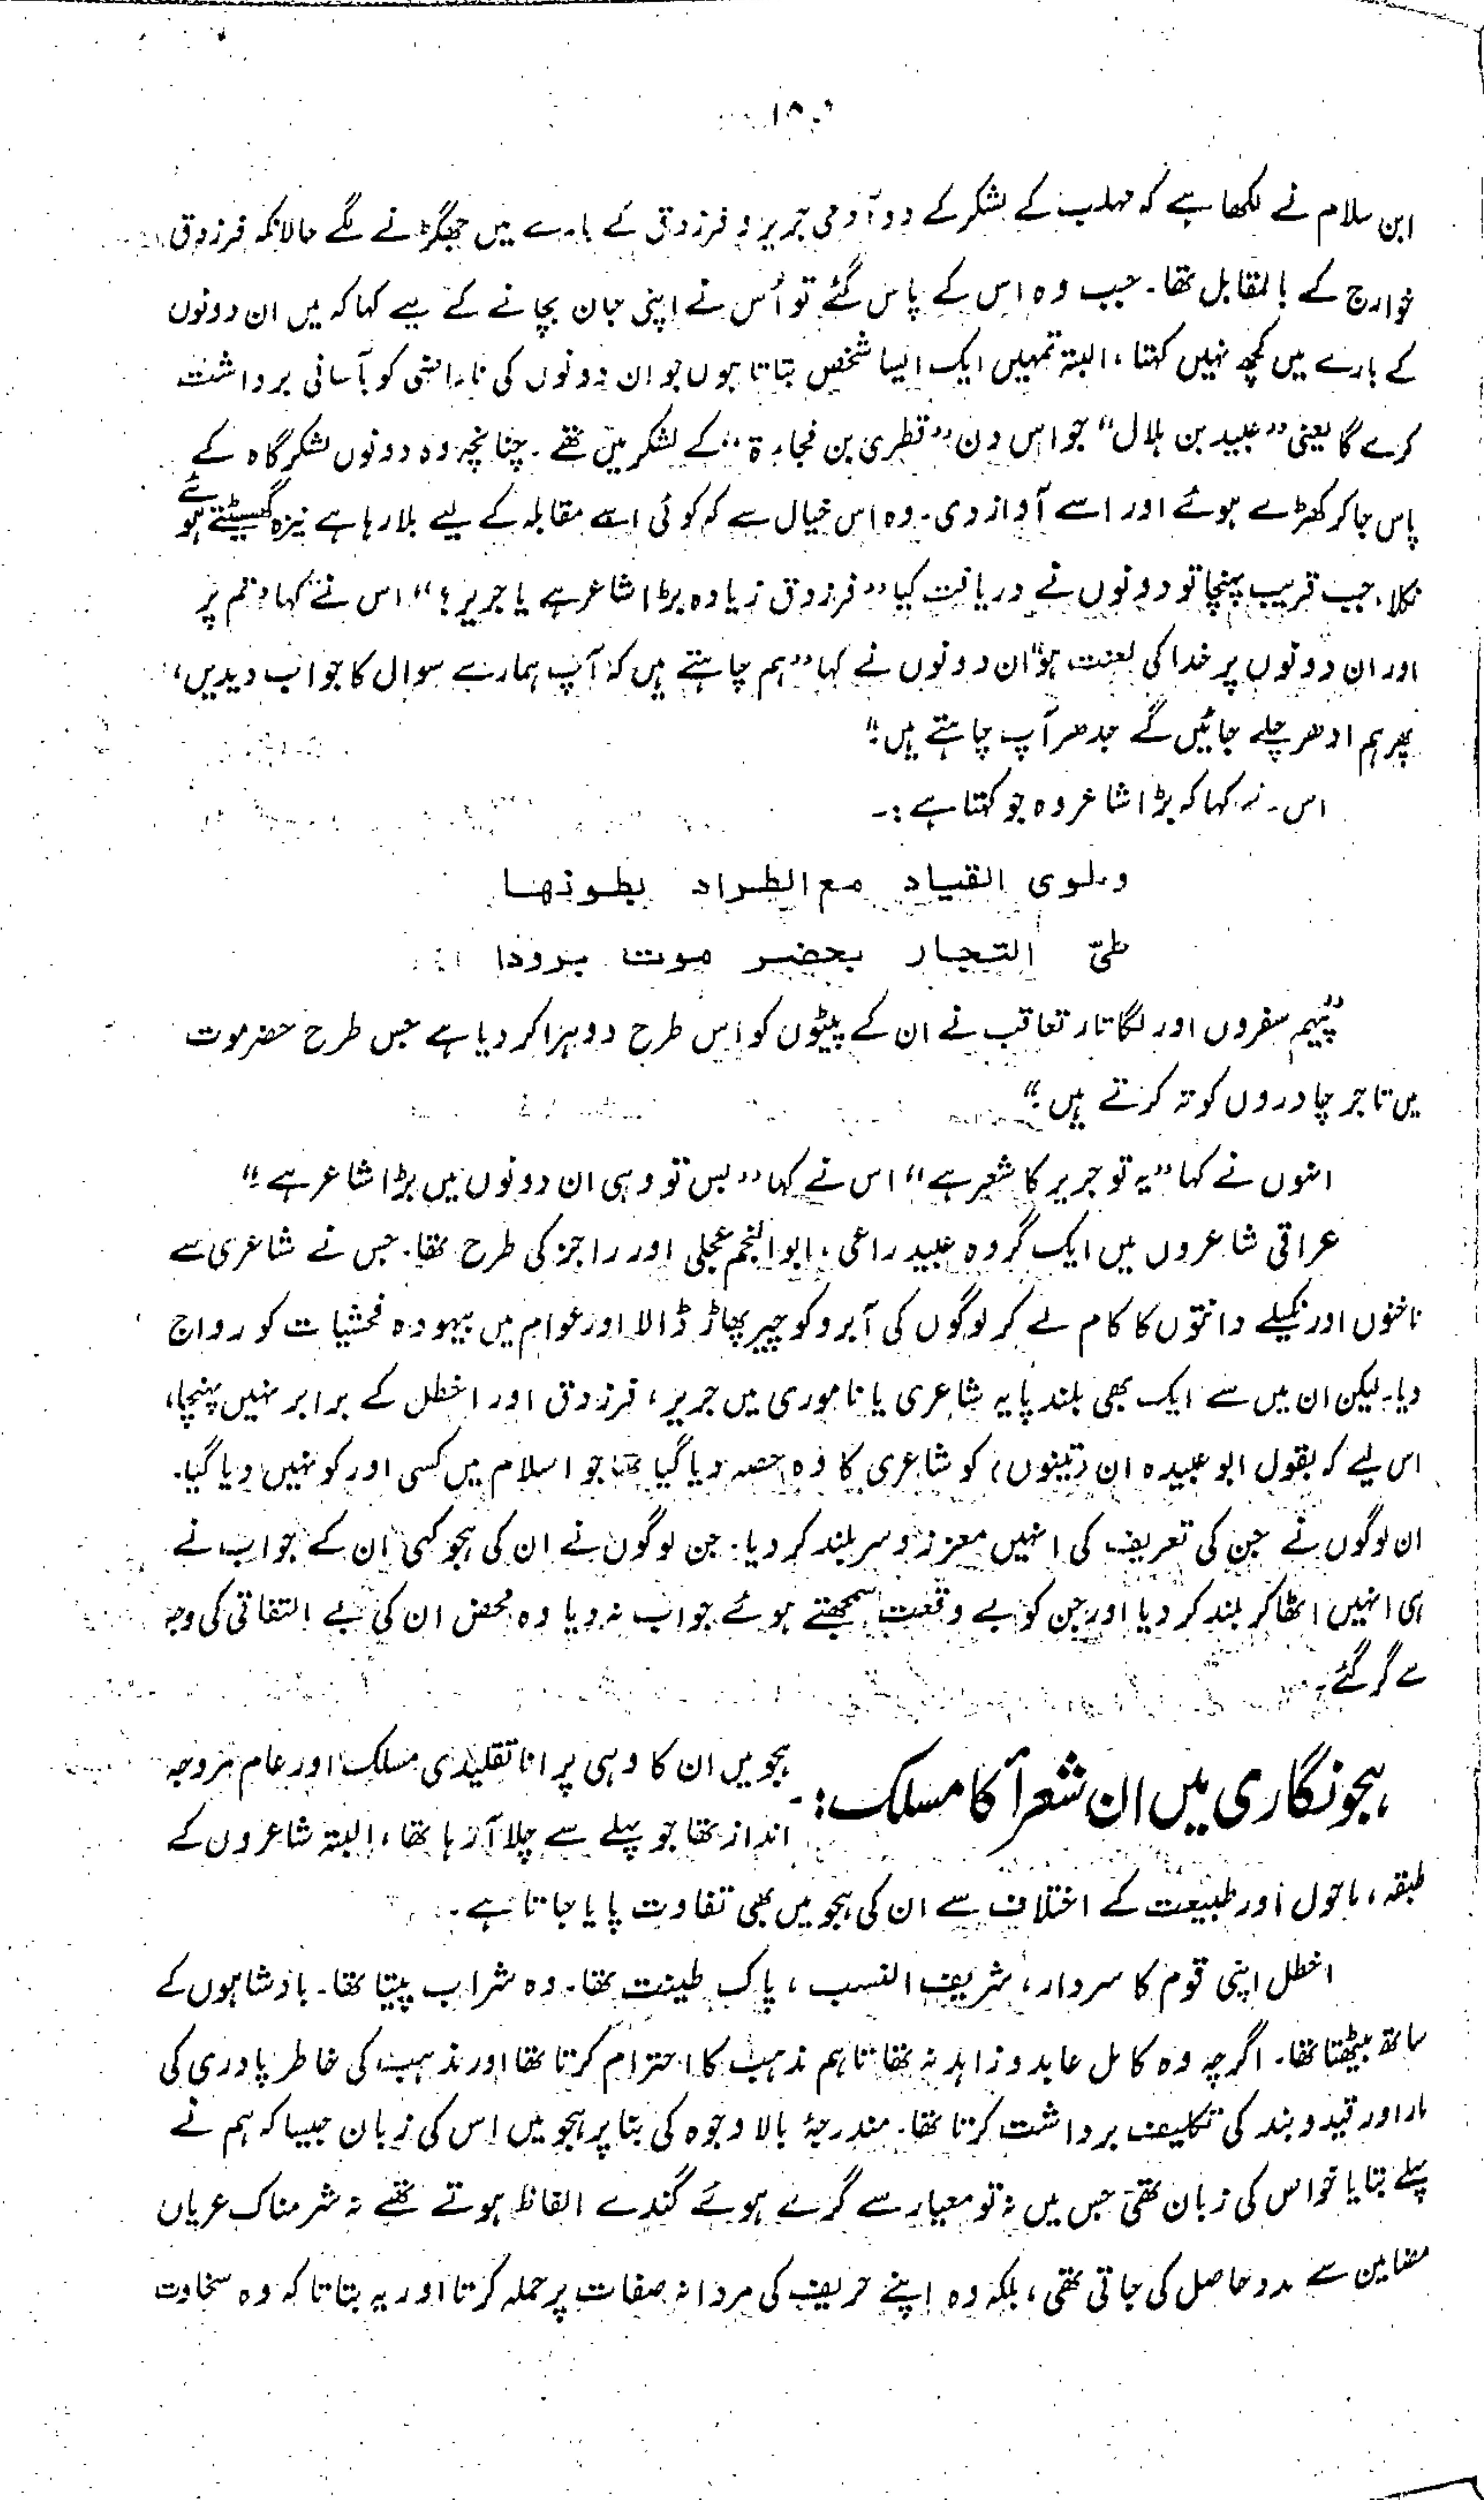 ابن سلام نے لکھا ہے کہ مہلب کے لشکر کے دو آدمی جریر و فرزدق کے بارے میں جھگڑنے لگے حالانکہ فرزدق
خوارج کے بالمقابل تھا۔ جب وہ اس کے پاس گئے تو اُس نے اپنی جان بچانے کے لیے کہا کہ میں ان دونوں
کے بارے میں کچھ نہیں کہتا، البتہ تمہیں ایک ایسا شخص بتاتا ہوں جو ان دونوں کی ناراضی کو بآسانی برداشت
کرے گا یعنی "عبید بن ہلال" جو اس دن "قطری بن فجارۃ" کے لشکر میں تھے۔ چنانچہ وہ دونوں لشکر گاہ کے
پاس جا کر کھڑے ہوئے اور اسے آواز دی۔ وہ اس خیال سے کہ کوئی اسے مقابلہ کے لیے بلا رہا ہے نیزہ گھسیٹتے ہوئے
نکلا، جب قریب پہنچا تو دونوں نے دریافت کیا "فرزدق زیادہ بڑا شاعر ہے یا جریر؟" اس نے کہا "تم پر
اور ان دونوں پر خدا کی لعنت ہو" ان دونوں نے کہا "ہم چاہتے ہیں کہ آپ ہمارے سوال کا جواب دیدیں،
پھر ہم ادھر چلے جائیں گے جدھر آپ چاہتے ہیں۔"
اس نے کہا کہ بڑا شاعر وہ جو کہتا ہے:۔
وطوى القياد مع الطراد بطونها
طىّ التجار بحضر موت برودا
"پیہم سفروں اور لگاتار تعاقب نے ان کے پیٹوں کو اس طرح دوہرا کر دیا ہے جس طرح حضرموت
میں تاجر چادروں کو تہ کرتے ہیں۔"
انہوں نے کہا "یہ تو جریر کا شعر ہے" اس نے کہا "بس تو وہی ان دونوں میں بڑا شاعر ہے۔"
عراقی شاعروں میں ایک گروہ عبید راعی، ابوالنجم عجلی اور راجز کی طرح تھا۔ جس نے شاعری سے
ناخنوں اور نکیلے دانتوں کا کام لے کر لوگوں کی آبرو کو چیر پھاڑ ڈالا اور عوام میں بیہودہ فحشیات کو رواج
دیا۔ لیکن ان میں سے ایک بھی بلند پایہ شاعری یا ناموری میں جریر، فرزدق اور اخطل کے برابر نہیں پہنچا،
اس لیے کہ بقول ابوعبیدہ ان (تینوں) کو شاعری کا وہ حصہ دیا گیا تھا جو اسلام میں کسی اور کو نہیں دیا گیا۔
ان لوگوں نے جن کی تعریف کی انہیں معزز و سربلند کر دیا۔ جن لوگوں نے ان کی ہجو کہی ان کے جواب نے
ہی انہیں اٹھا کر بلند کر دیا اور جن کو بے وقعت سمجھتے ہوئے جواب نہ دیا وہ محض ان کی بے التفاتی کی وجہ
سے گر گئے۔
ہجو نگاری میں ان شعرأ کا مسلک:۔ ہجو میں ان کا وہی پرانا تقلیدی مسلک اور عام مروجہ
انداز تھا جو پہلے سے چلا آ رہا تھا، البتہ شاعروں کے
طبقہ، ماحول اور طبیعت کے اختلاف سے ان کی ہجو میں بھی تفاوت پایا جاتا ہے۔
اخطل اپنی قوم کا سردار، شریف النسب، پاک طینت تھا۔ وہ شراب پیتا تھا۔ بادشاہوں کے
ساتھ بیٹھتا تھا۔ اگرچہ وہ کامل عابد و زاہد نہ تھا تاہم مذہب کا احترام کرتا تھا اور مذہب کی خاطر پادری کی
مار اور قید و بند کی تکلیف برداشت کرتا تھا۔ مندرجۂ بالا وجوہ کی بنا پر ہجو میں اس کی زبان جیسا کہ ہم نے
پہلے بتایا خواص کی زبان تھی جس میں نہ تو معیار سے گرے ہوئے گندے الفاظ ہوتے تھے نہ شرمناک عریاں
مضامین سے مدد حاصل کی جاتی تھی، بلکہ وہ اپنے حریف کی مردانہ صفات پر حملہ کرتا اور یہ بتاتا کہ وہ سخاوت